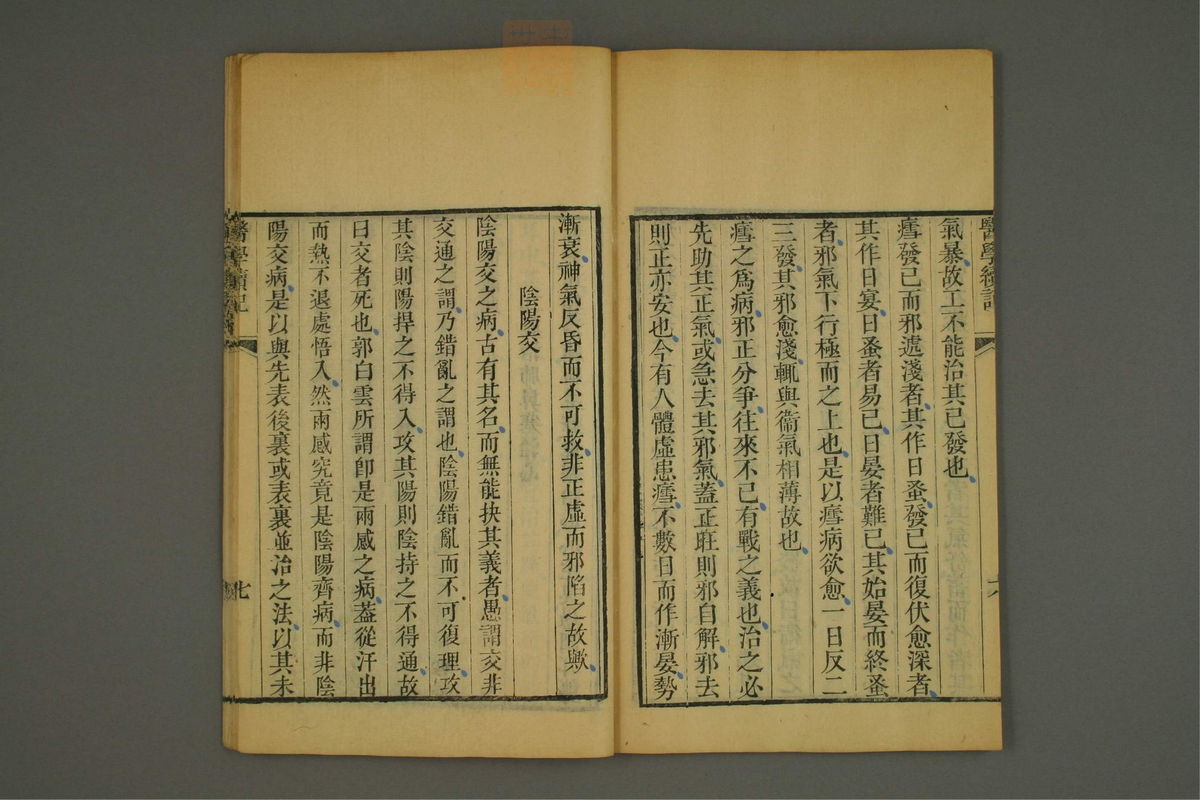 醫學續記
氣暴故工不能治其已發也
瘧發已而邪遽淺者其作日蚤發已而復伏愈深者
其作日宴日蚤者易已日晏者難已其始晏而終蚤
者邪氣下行極而之上也是以瘧病欲愈一日反二
三發其邪愈淺輒與衞氣相薄故也
瘧之爲病邪正分爭往來不已有戰之義也治之必
先助其正氣或急去其邪氣蓋正旺則邪自解邪去
則正亦安也今有人體虛患瘧不數日而作漸晏勢
六
漸衰神氣反昏而不可救非正虛而邪陷之故歟
陰陽交
陰陽交之病古有其名而無能抉其義者愚謂交非
交通之謂乃錯亂之謂也陰陽錯亂而不可復理攻
其陰則陽捍之不得入攻其陽則陰持之不得通故
曰交者死也郭白雲所謂卽是兩感之病蓋從汗出
而熱不退處悟入然兩感究竟是陰陽齊病而非陰
陽交病是以與先表後裏或表裏並治之法以其未
醫學續記
七